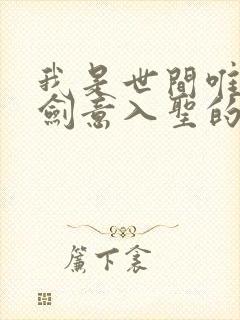 我是世間唯
劍意入聖的
簾下衾